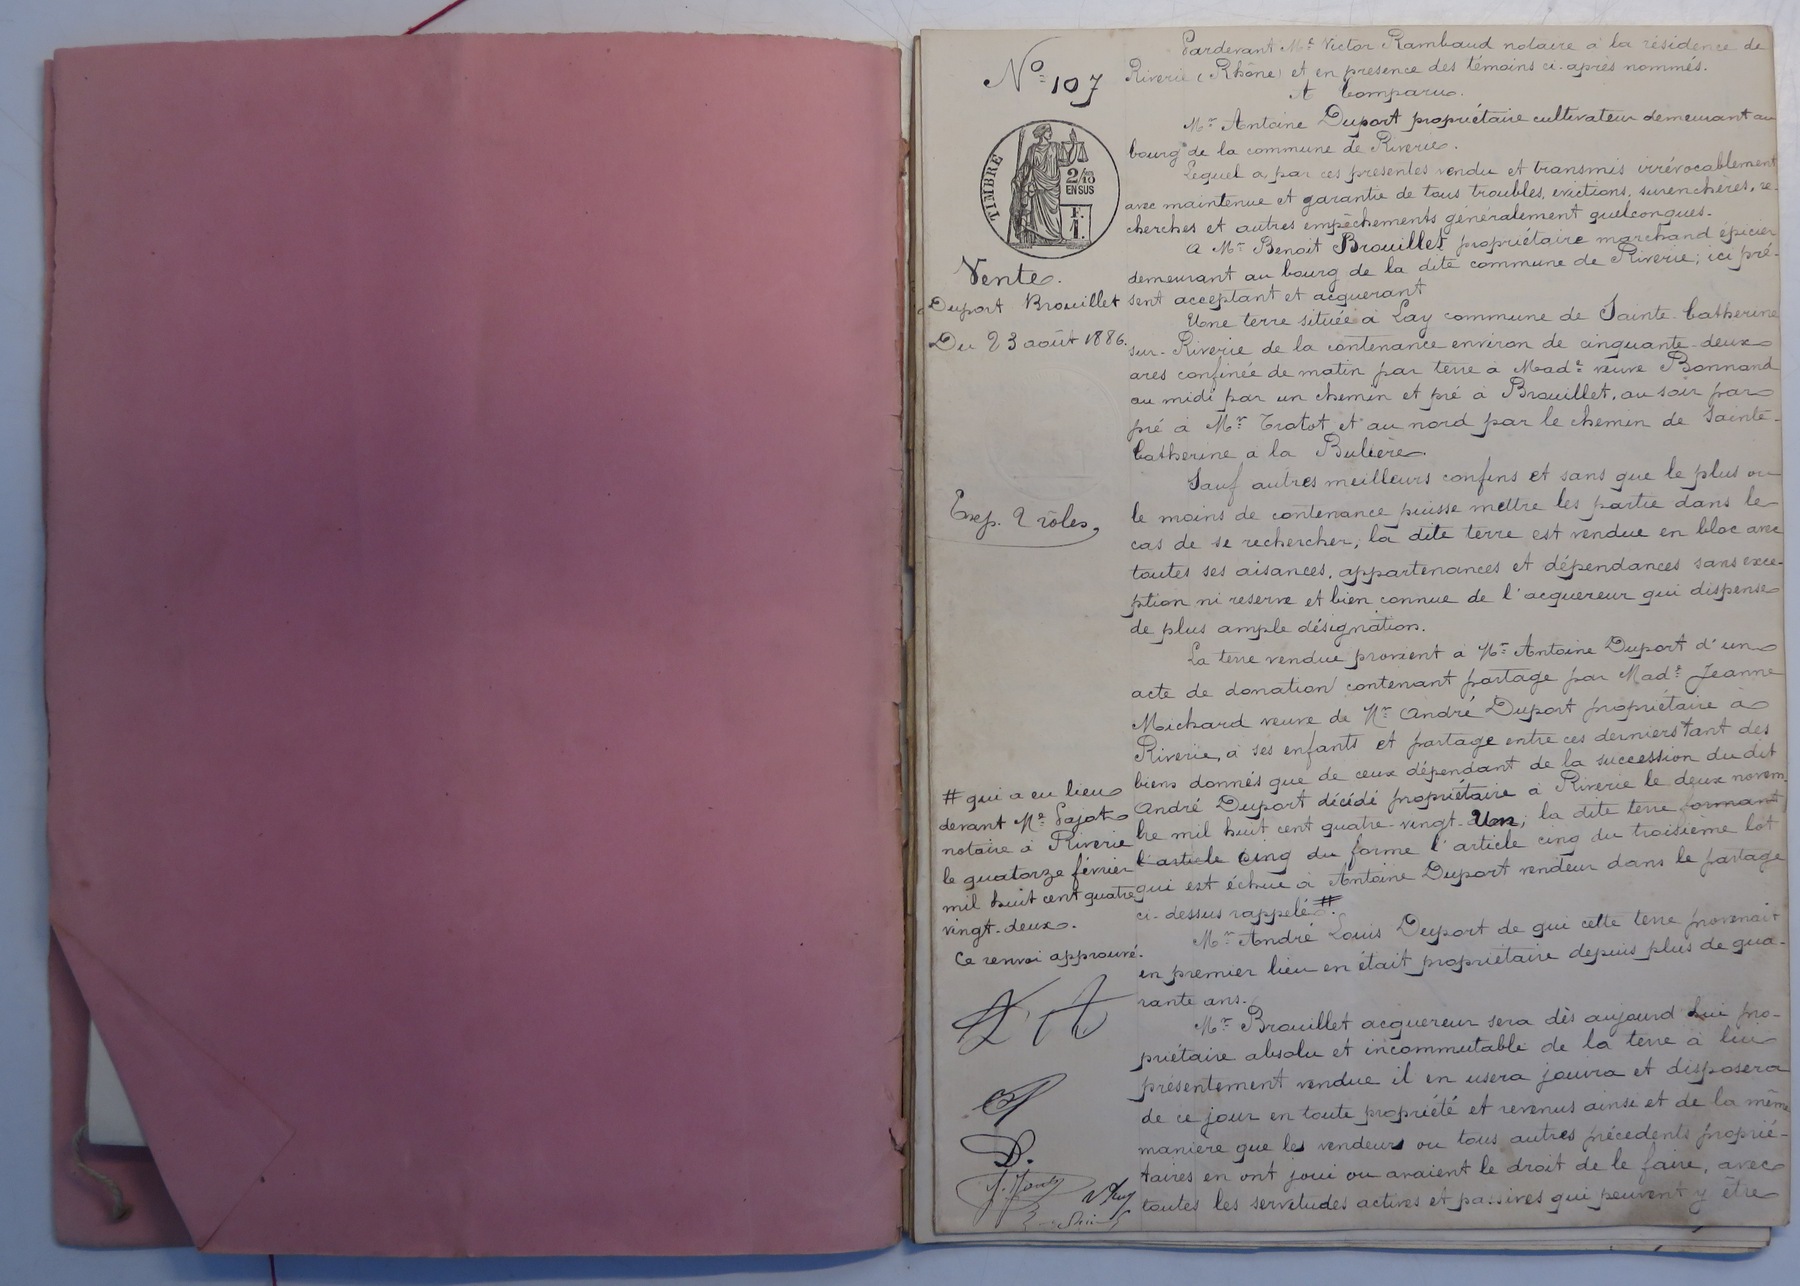 Nº 107
TIMBRE
2/10
EN SUS
F.
1.
Vente.
Duport Brouillet
Du 23 août 1886.
Exp. 2 rôles,
Pardevant Me Victor Rambaud notaire à la résidence de
Riverie (Rhône) et en presence des témoins ci-après nommés.
A Comparu.
Mr Antoine Duport propriétaire cultivateur demeurant au
bourg de la commune de Riverie.
Lequel a par ces présentes vendu et transmis irrévocablement
avec maintenue et garantie de tous troubles, evictions, surenchères, re-
cherches et autres empêchements généralement quelconques.
A Mr Benoit Brouillet propriétaire marchand épicier
demeurant au bourg de la dite commune de Riverie; ici pré-
sent acceptant et acquerant
Une terre située à Lay commune de Sainte-Catherine
sur-Riverie de la contenance environ de cinquante-deux
ares confinée de matin par terre à Made veuve Bonnand
au midi par un chemin et pré à Brouillet, au soir par
pré à Mr Trotot et au nord par le chemin de Sainte-
Catherine a la Bulière.
Sauf autres meilleurs confins et sans que le plus ou
le moins de contenance puisse mettre les partie dans le
cas de se rechercher, la dite terre est vendue en bloc avec
toutes ses aisances, appartenances et dépendances sans exce-
ption ni reserve et bien connue de l'acquereur qui dispense
de plus ample désignation.
La terre vendue provient à Mr Antoine Duport d'un
acte de donation contenant partage par Made Jeanne
Michard veuve de Mr André Duport propriétaire à
Riverie, à ses enfants et partage entre ces derniers tant des
biens donnés que de ceux dépendant de la succession du dit
André Duport décédé propriétaire à Riverie le deux novem-
bre mil huit cent quatre-vingt-Un; la dite terre formant
l'article cinq du forme l'article cinq du troisième lot
qui est échue à Antoine Duport vendeur dans le partage
ci-dessus rappelé #
# qui a eu lieu
devant Me Pajot
notaire à Riverie
le quatorze février
mil huit cent quatre
vingt-deux.
Ce renvoi approuvé.
D.
Mr André Louis Duport de qui cette terre provenait
en premier lieu en était propriétaire depuis plus de qua-
rante ans.
Mr Brouillet acquereur sera dès aujourd hui pro-
priétaire absolu et incommutable de la terre à lui
présentement vendue il en usera jouira et disposera
de ce jour en toute propriété et revenus ainsi et de la même
manière que les vendeurs ou tous autres précedents proprié-
taires en ont joui ou avaient le droit de le faire, avec
toutes les servitudes actives et passives qui peuvent y être